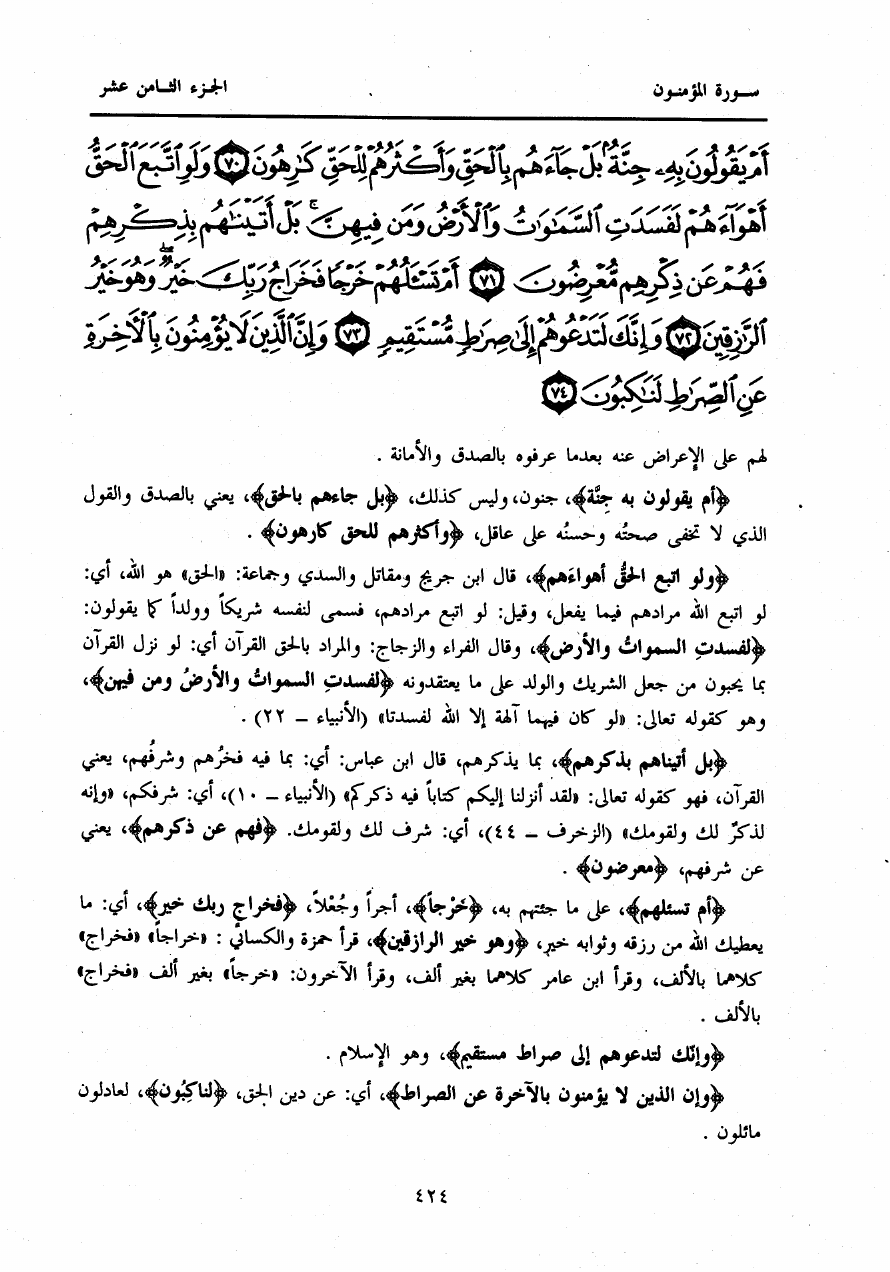 سـورة المؤمنـون
الجـزء الثـامن عشر
أَمْ يَقُولُونَ بِهِۦ جِنَّةٌۢ بَلْ جَآءَهُم بِٱلْحَقِّ وَأَكْثَرُهُمْ لِلْحَقِّ كَٰرِهُونَ ٧٠ وَلَوِ ٱتَّبَعَ ٱلْحَقُّ
أَهْوَآءَهُمْ لَفَسَدَتِ ٱلسَّمَٰوَٰتُ وَٱلْأَرْضُ وَمَن فِيهِنَّ ۚ بَلْ أَتَيْنَٰهُم بِذِكْرِهِمْ
فَهُمْ عَن ذِكْرِهِم مُّعْرِضُونَ ٧١ أَمْ تَسْـَٔلُهُمْ خَرْجًا فَخَرَاجُ رَبِّكَ خَيْرٌ ۖ وَهُوَ خَيْرُ
ٱلرَّٰزِقِينَ ٧٢ وَإِنَّكَ لَتَدْعُوهُمْ إِلَىٰ صِرَٰطٍ مُّسْتَقِيمٍ ٧٣ وَإِنَّ ٱلَّذِينَ لَا يُؤْمِنُونَ بِٱلْأَخِرَةِ
عَنِ ٱلصِّرَٰطِ لَنَٰكِبُونَ ٧٤
لهم على الإعراض عنه بعدما عرفوه بالصدق والأمانة .
﴿أم يقولون به جِنَّة﴾، جنون، وليس كذلك، ﴿بل جاءهم بالحق﴾، يعني بالصدق والقول
الذي لا تخفى صحتُه وحسنُه على عاقل، ﴿وأكثرهم للحق كارهون﴾ .
﴿ولو اتبع الحقُّ أهواءَهم﴾، قال ابن جريج ومقاتل والسدي وجماعة: «الحق» هو الله، أي:
لو اتبع الله مرادهم فيما يفعل، وقيل: لو اتبع مرادهم، فسمى لنفسه شريكاً وولداً كما يقولون:
﴿لفسدتِ السمواتُ والأرض﴾، وقال الفراء والزجاج: والمراد بالحق القرآن أي: لو نزل القرآن
بما يحبون من جعل الشريك والولد على ما يعتقدونه ﴿لفسدتِ السمواتُ والأرضُ ومن فيهن﴾،
وهو كقوله تعالى: «لو كان فيهما آلهة إلا الله لفسدتا» (الأنبياء ــ ٢٢) .
﴿بل أتيناهم بذكرهم﴾، بما يذكرهم، قال ابن عباس: أي: بما فيه فخرُهم وشرفُهم، يعني
القرآن، فهو كقوله تعالى: «لقد أنزلنا إليكم كتاباً فيه ذكركم» (الأنبياء ــ ١٠)، أي: شرفكم، «وإنه
لذكرٌ لك ولقومك» (الزخرف ــ ٤٤)، أي: شرف لك ولقومك. ﴿فهم عن ذكرهم﴾، يعني
عن شرفهم، ﴿معرضون﴾ .
﴿أم تسئلهم﴾، على ما جئتهم به، ﴿خَرْجاً﴾، أجراً وجُعْلاً، ﴿فخراج ربك خير﴾، أي: ما
يعطيك الله من رزقه وثوابه خير، ﴿وهو خير الرازقين﴾، قرأ حمزة والكسائي : «خراجاً» «فخراج»
كلاهما بالألف، وقرأ ابن عامر كلاهما بغير ألف، وقرأ الآخرون: «خرجاً» بغير ألف «فخراج»
بالألف .
﴿وإنّك لتدعوهم إلى صراط مستقيم﴾، وهو الإسلام .
﴿وإن الذين لا يؤمنون بالآخرة عن الصراط﴾، أي: عن دين الحق، ﴿لناكِبُون﴾، لعادلون
مائلون .
٤٢٤